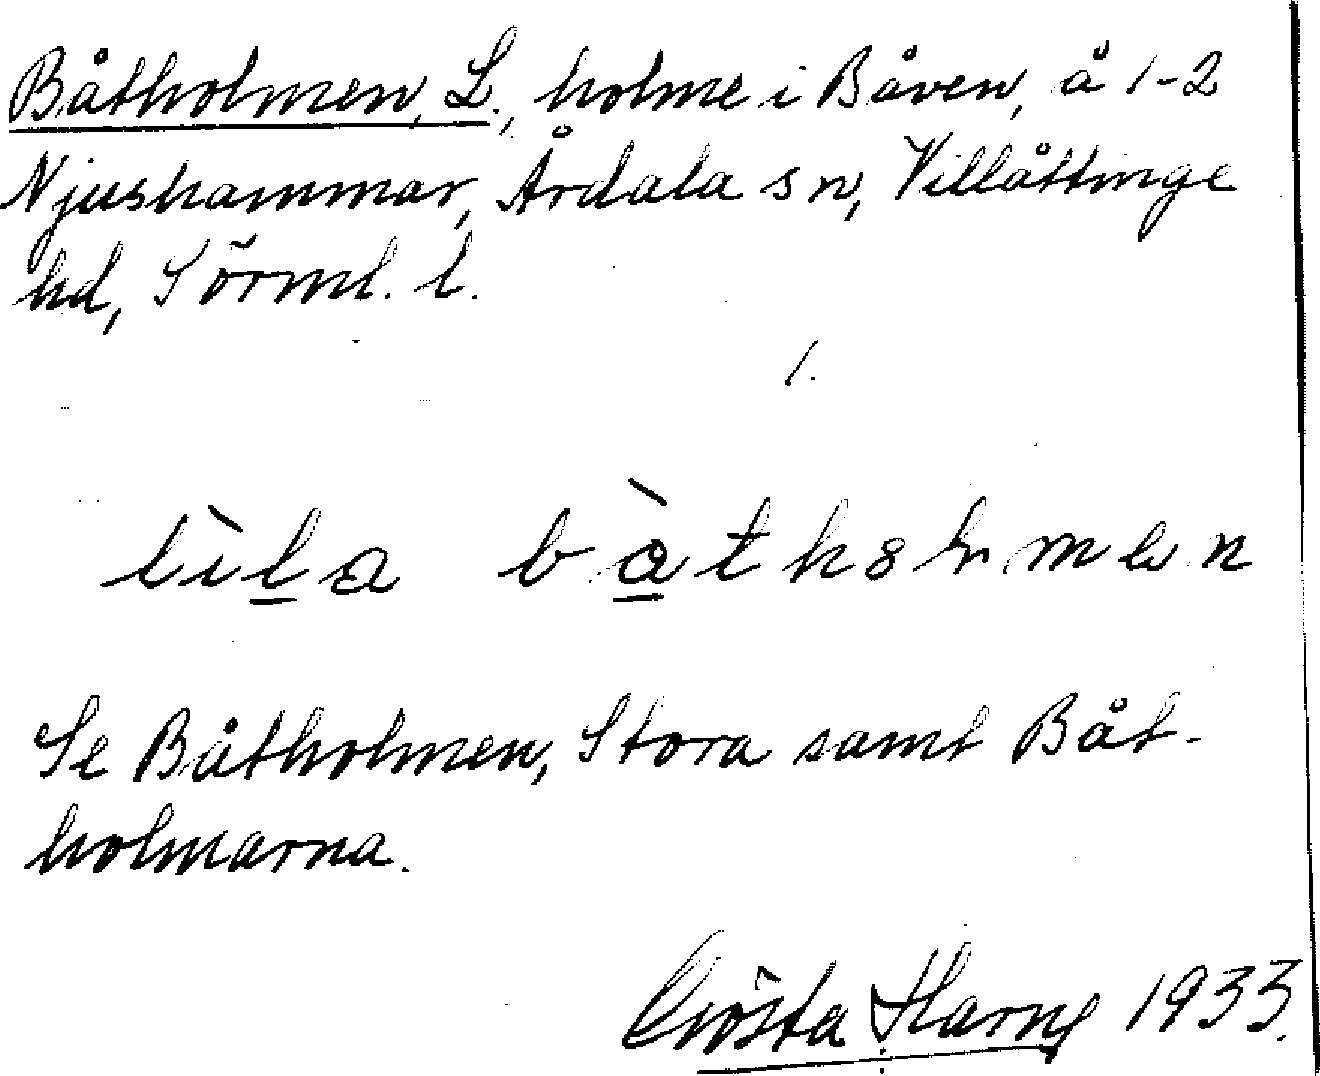 Båtholmen, L., holme i Båven, å 1-2
Njushammar, Årdala sn, Villåttinge
hd, Sörml. l.
1.
lìla bàthȣlmen
Se Båtholmen, Stora samt Båt-
holmarna.
Gösta Harng 1933.